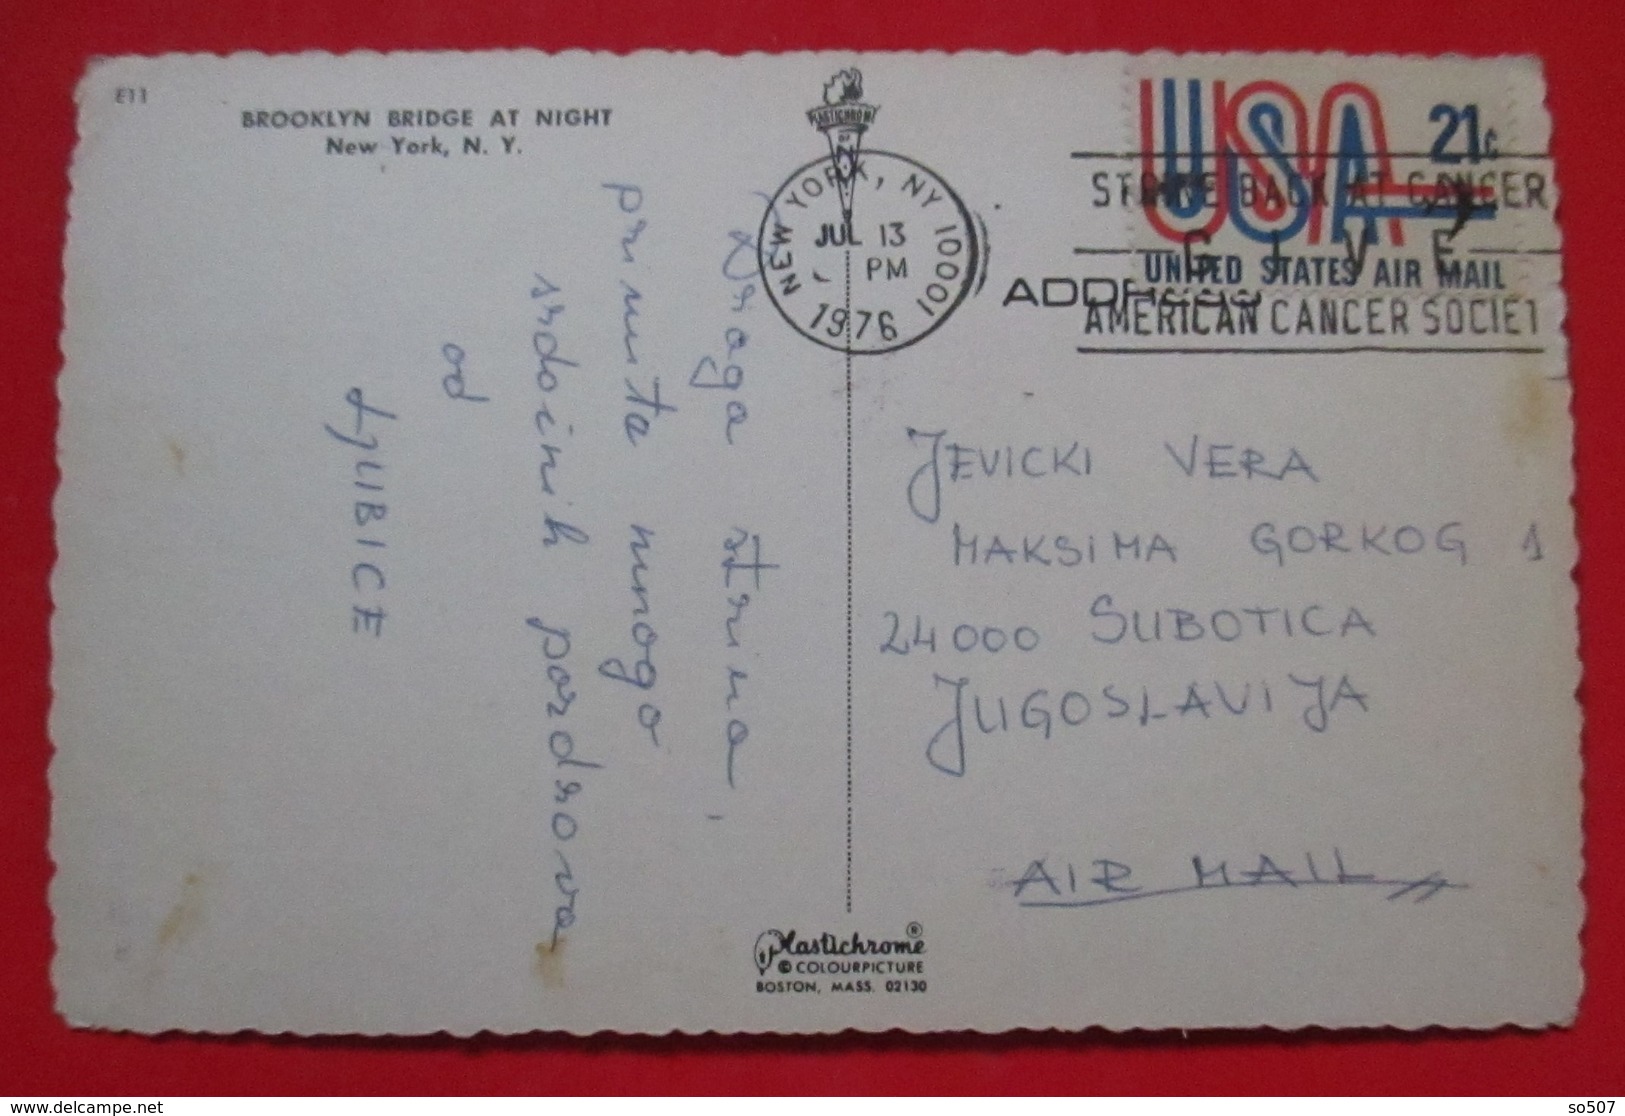 E11
BROOKLYN BRIDGE AT NIGHT
New York, N. Y.
Draga strina,
primite mnogo
srdočnih pozdrova
od
LJUBICE
PLASTICHROME
NEW YORK, NY 10001
JUL 13
PM
1976
USA 21c
UNITED STATES AIR MAIL
STRIKE BACK AT CANCER
GIVE
AMERICAN CANCER SOCIET
ADDRESS
JEVICKI VERA
MAKSIMA GORKOG 1
24000 SUBOTICA
JUGOSLAVIJA
AIR MAIL
Plastichrome®
© COLOURPICTURE
BOSTON, MASS. 02130
delcampe.net
so507